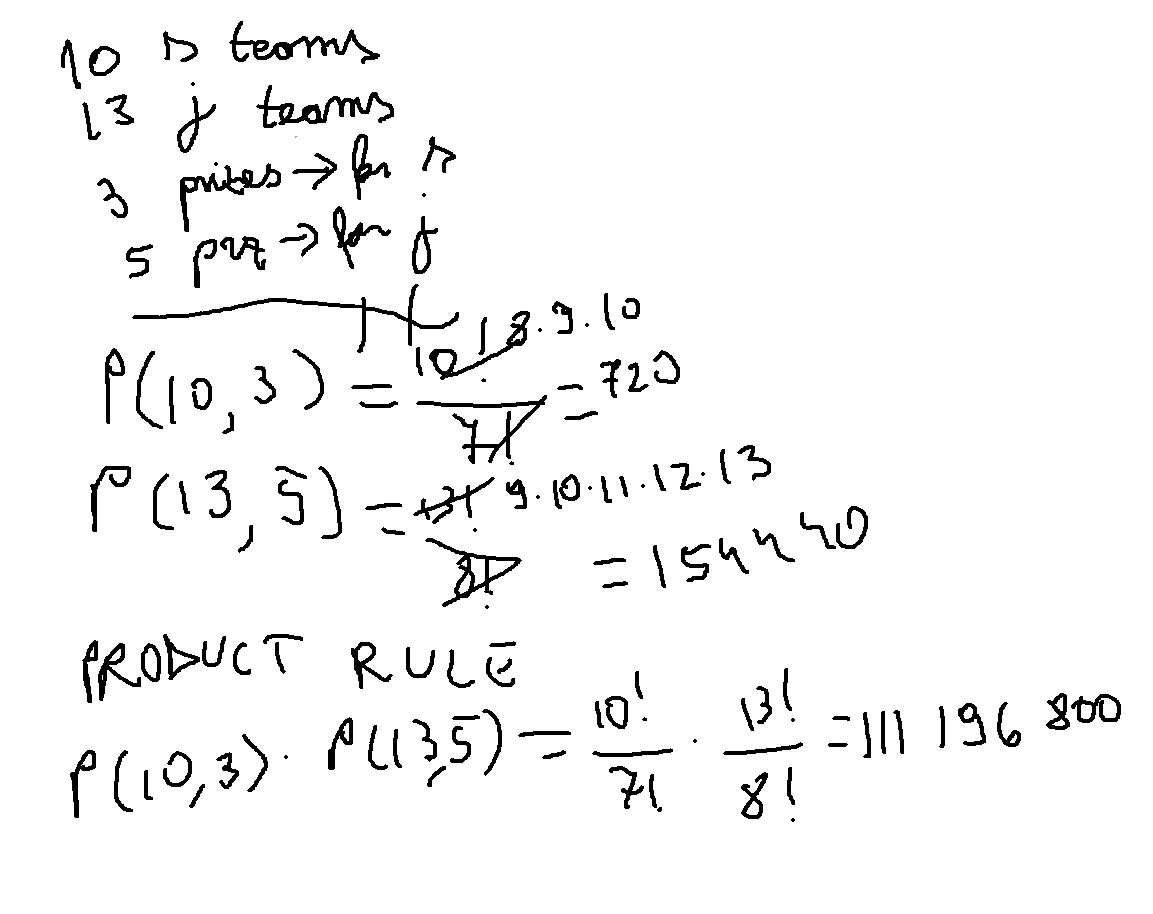 10 s teams
13 j teams
3 prizes → for s
5 prz → for j
P(10, 3) = 10! 8.9.10 / 7! = 720
P(13, 5) = 13! 9.10.11.12.13 / 8!
= 154440
PRODUCT RULE
P(10,3) . P(13,5) = 10! / 7! . 13! / 8! = 111 196 800